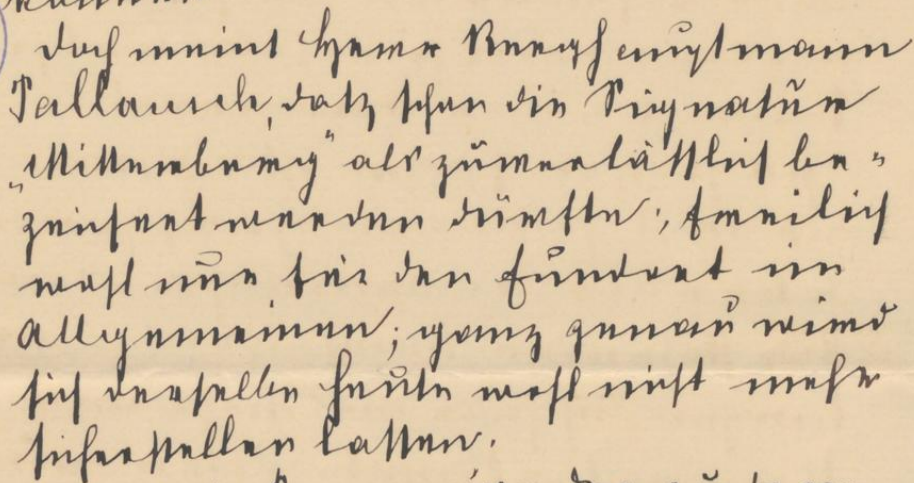 Doch meint Herr Berghauptmann
Pallausch, daß schon die Signatur
„Mitterberg" als zuverläßlich be=
zeichnet werden dürfte; freilich
wohl nur für den Fundort im
Allgemeinen; ganz genau wird
sich derselbe heute wohl nicht mehr
sicherstellen lassen.